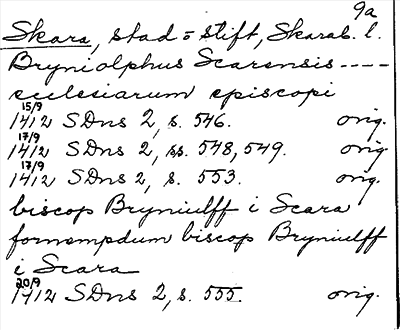 9a
Skara, stad o stift, Skarab. l.
Bryniolphus Scarensis ----
ecclesiarum episcopi
15/9
1412 SDns 2, s. 546. orig.
17/9
1412 SDns 2, ss. 548, 549. orig
17/9
1412 SDns 2, s. 553. orig.
biscop Bryniulff i Scara
fornempdum biscop Bryniulff
i Scara
20/9
1412 SDns 2, s. 555. orig.